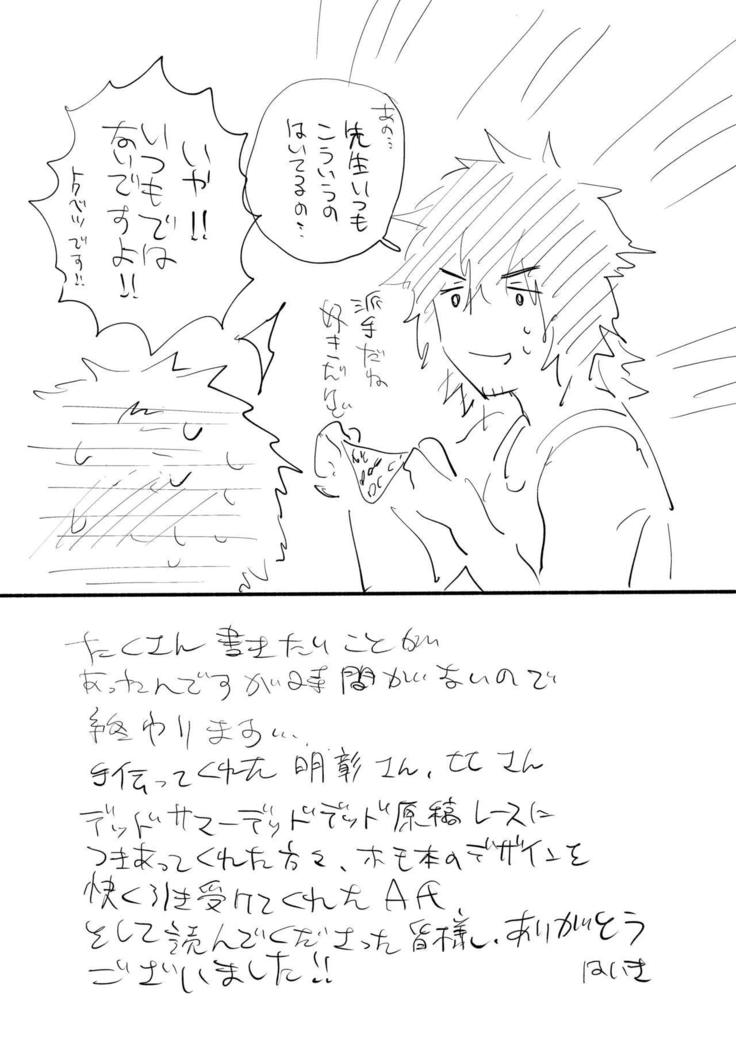 あの…
先生いつも
こういうの
はいてるの…
いや!!
いつもでは
ないですよ!!
トクベツです!!
派手だね
好きだけど
たくさん書きたいことが
あったんですが時間がないので
終わります…
手伝ってくれた明彰さん、セセさん
デッドサマーデッドデッド原稿レースに
つきあってくれた方々、ホモ本のデザインを
快く引き受けてくれたA氏
そして読んでくださった皆様し、ありがとう
ございました!!
はいき